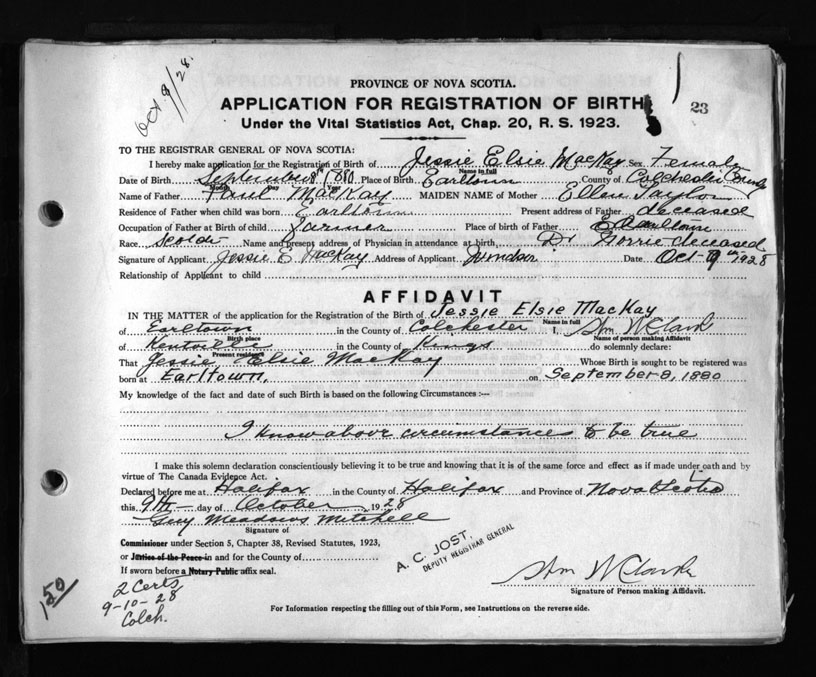 Oct 9/28.
PROVINCE OF NOVA SCOTIA.
APPLICATION FOR REGISTRATION OF BIRTH
23
Under the Vital Statistics Act, Chap. 20, R. S. 1923.
TO THE REGISTRAR GENERAL OF NOVA SCOTIA:
I hereby make application for the Registration of Birth of Jessie Elsie MacKay Sex Female
Name in full
Date of Birth September 8th 1880 Place of Birth Earltown County of Colchester County
Month Day Year
Name of Father MacKay MAIDEN NAME of Mother Ellen Taylor
Residence of Father when child was born Earltown Present address of Father deceased
Occupation of Father at Birth of child Farmer Place of birth of Father Earltown
Race Scotch Name and present address of Physician in attendance at birth, Dr Gorrie deceased
Signature of Applicant Jessie E MacKay Address of Applicant Windsor Date Oct 9th 1928
Relationship of Applicant to child
AFFIDAVIT
IN THE MATTER of the application for the Registration of the Birth of Jessie Elsie MacKay
Name in full
of Earltown in the County of Colchester I, Wm W Clark
Birth place Name of person making Affidavit
of Kentville in the County of Kings do solemnly declare:
Present residence
That Jessie Elsie MacKay Whose Birth is sought to be registered was
born at Earltown, on September 8, 1880
My knowledge of the fact and date of such Birth is based on the following Circumstances :--
I know above circumstances to be true
I make this solemn declaration conscientiously believing it to be true and knowing that it is of the same force and effect as if made under oath and by
virtue of The Canada Evidence Act.
Declared before me at Halifax in the County of Halifax and Province of Nova Scotia
this 9th day of October 1928
Guy Meadows Mitchell
Signature of
Commissioner under Section 5, Chapter 38, Revised Statutes, 1923,
or Justice of the Peace in and for the County of
If sworn before a Notary Public affix seal.
A. C. JOST,
DEPUTY REGISTRAR GENERAL
Wm W Clark
Signature of Person making Affidavit.
150
2 Certs
9-10-28
Colch.
For Information respecting the filling out of this Form, see Instructions on the reverse side.